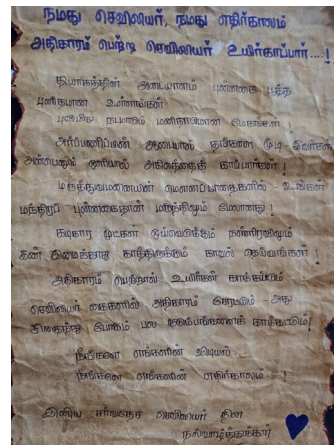 நமது செவிலியர், நமது எதிர்காலம்
அதிகாரம் பெற்ற செவிலியர் உயிர்காப்பார்....!
தியாகத்தின் அடையாளம் புன்னகை பூத்த
புனிதமான உள்ளங்கள்
புவியில் நடமாடும் மனிதாபிமான மேகங்கள் !
அர்ப்பணிப்பின் அடையாள
அன்பெனும் ஒளியால் அகிலத்தைக் காப்பார்கள் !
மருத்துவமனையின் மௌனப் பாதைகளில் - உங்கள்
மந்திரப் புன்னகைதான்
கடிகார முட்கள் ஓய்வெடுக்கும் நள்ளிரவிலும்
கண் இமைக்காது காத்திருக்கும் காவல் தெய்வங்கள் !
அதிகாரம் பெற்றால் உயிர்கள் காக்கப்படும்
செவிலியர் கைகளில் அதிகாரம் சேரட்டும் - அது
சிதைந்து போகும் பல குடும்பங்களைக் காக்கட்டும் !
நீங்களே எங்களின் விடியல் ...
நீங்களே எங்களின் எதிர்காலம் ... !
இனிய சர்வதேச செவிலியர் தின
நல்வாழ்த்துக்கள்